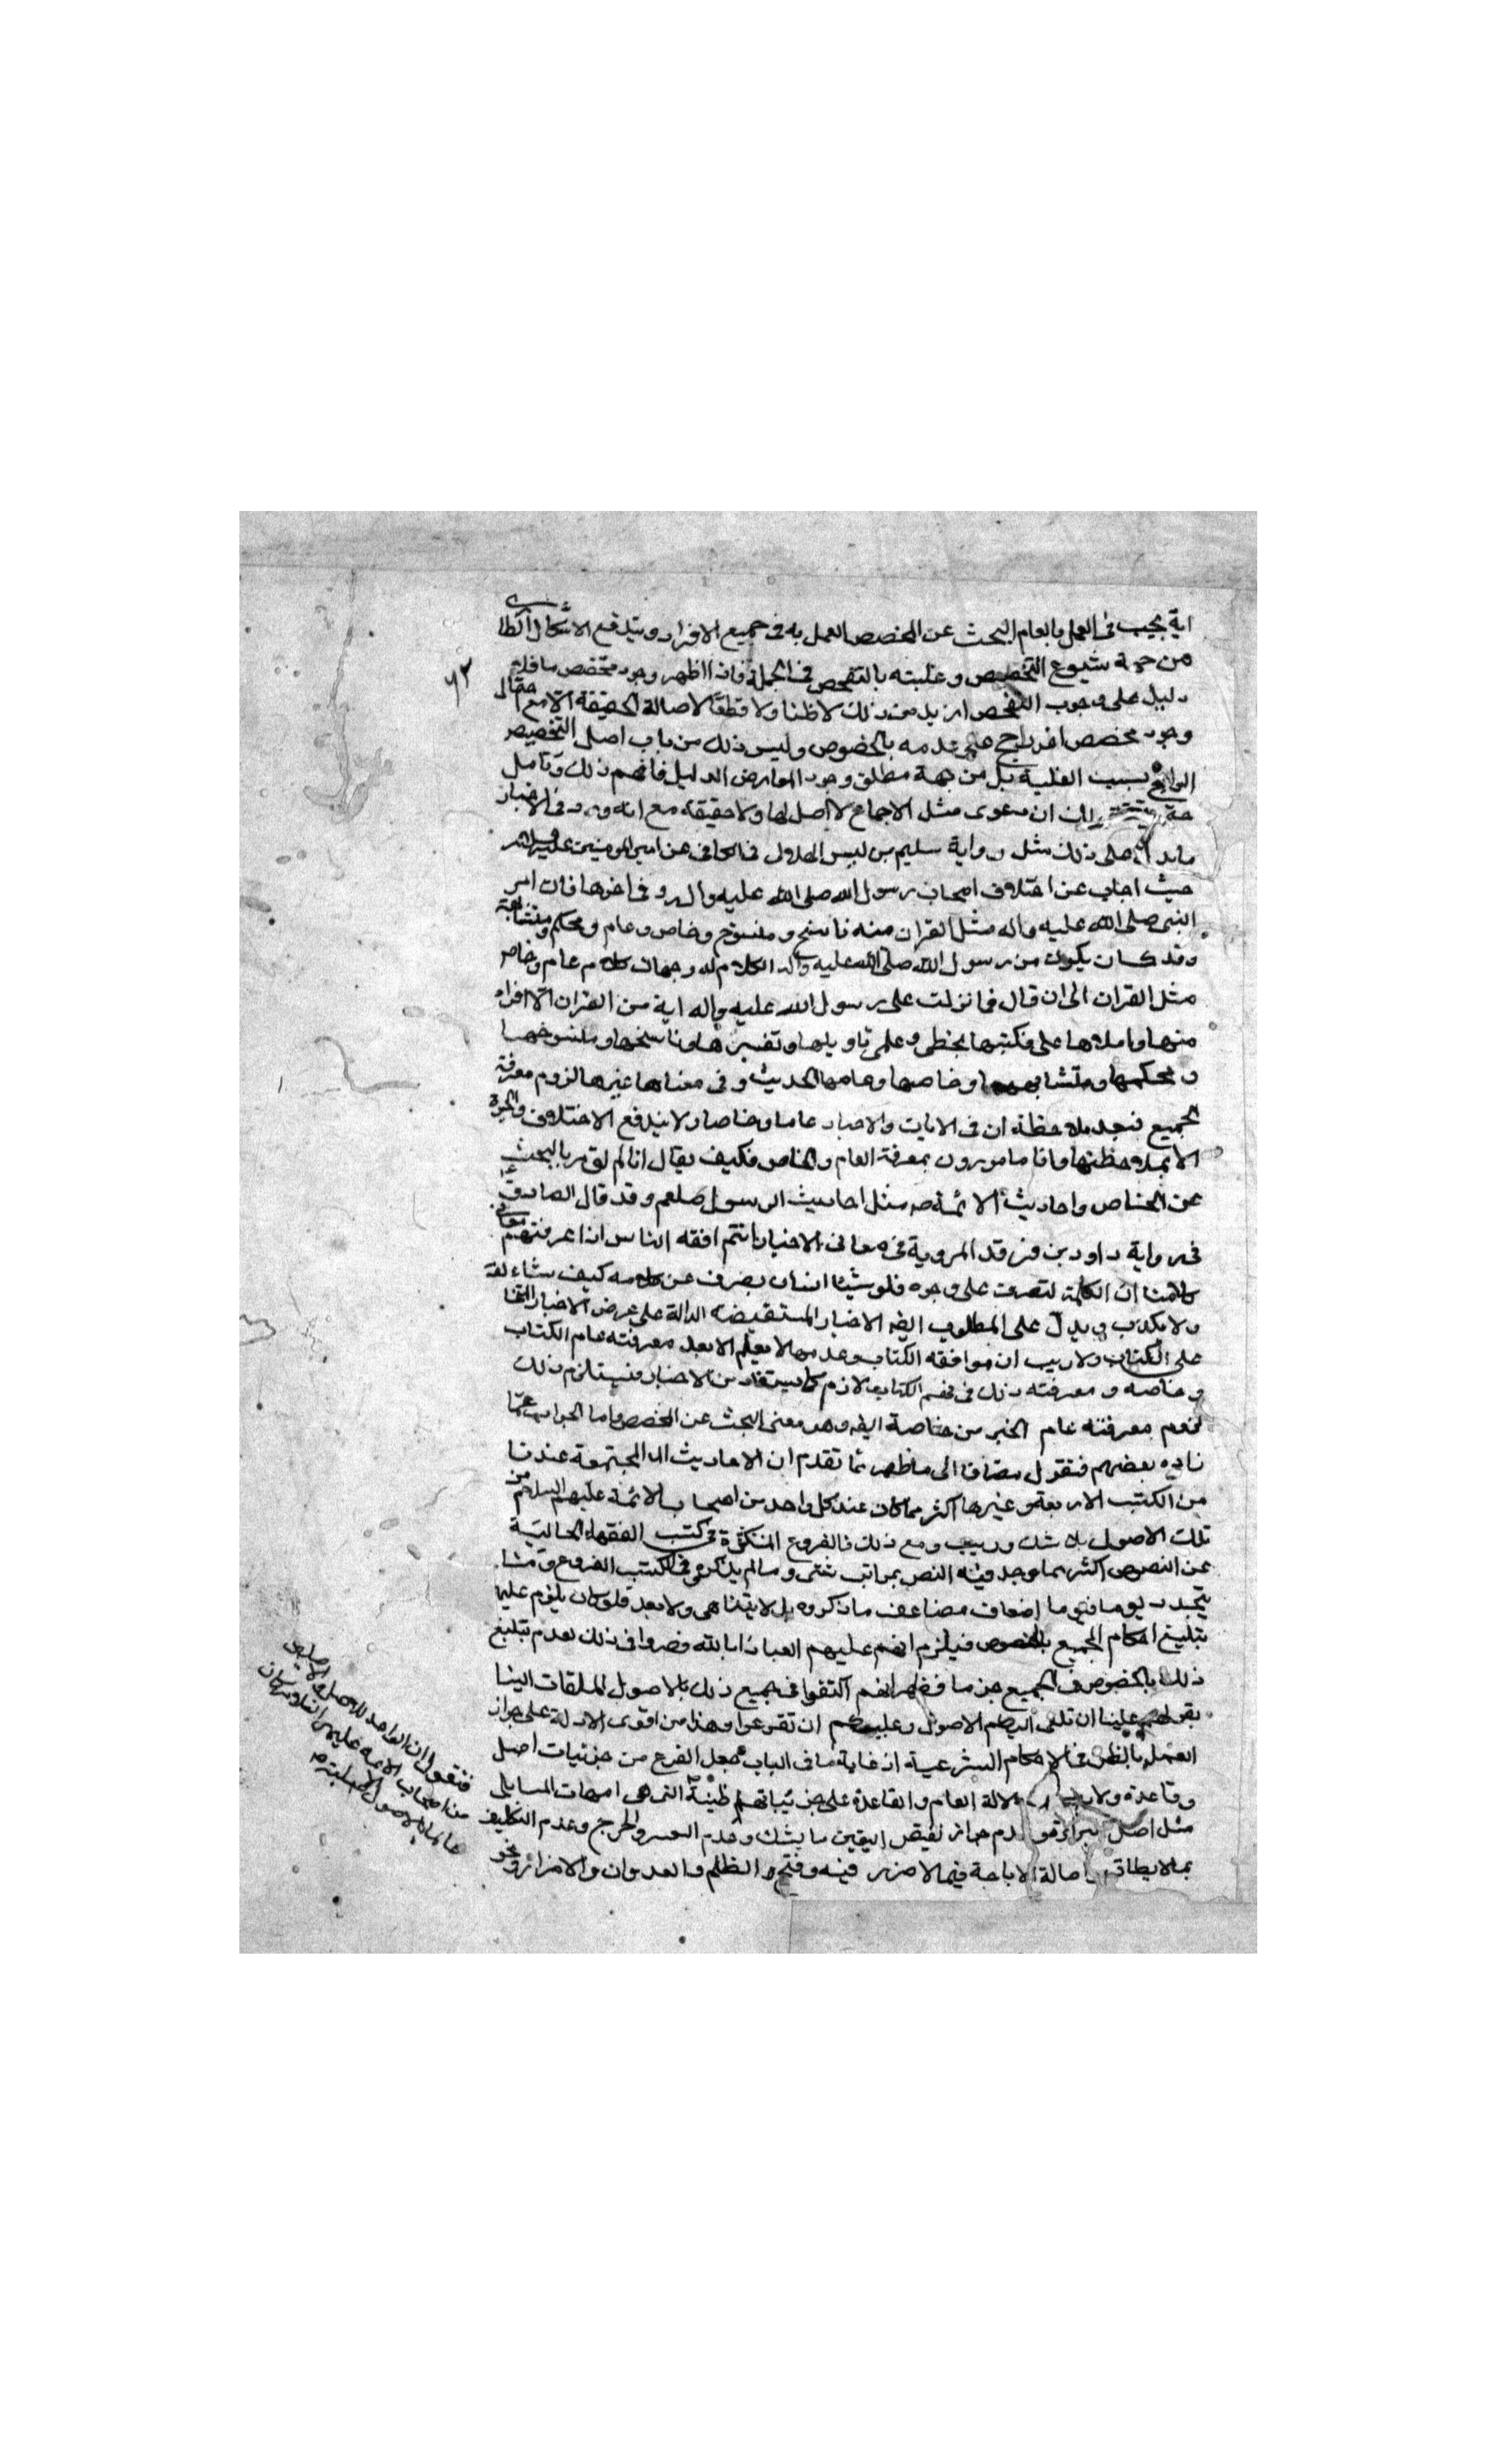 اية يجب فى العمل بالعام البحث عن المخصص العمل به فى جميع الافراد ويندفع الاشكال
من جهة شيوع التخصيص وغلبته بالتفحص فى الجملة فاذا اظهر وجود مخصص ما فلا
دليل على وجوب التفحص ازيد من ذلك لا ظنا ولا قطعا لاصالة الحقيقة الا مع احتمال
وجود مخصص اخر راجح على عدمه بالخصوص وليس ذلك من باب اصل التخصيص
الراجح بسبب الغلبة بل من جهة مطلق وجود المعارض الدليل فافهم ذلك وتامل
حتى لك ان دعوى مثل الاجماع لا اصل لها ولا حقيقة مع انه ورد فى الاخبار
ما يدل على ذلك مثل رواية سليم بن قيس الهلالى فى الكافى عن امير المؤمنين عليه السلام
حيث اجاب عن اختلاف اصحاب رسول الله صلى الله عليه واله وفى اخرها فان امر
النبى صلى الله عليه واله مثل القران منه ناسخ ومنسوخ وخاص وعام ومحكم ومتشابه
وقد كان يكون من رسول الله صلى الله عليه واله الكلام له وجهان كلام عام وخاص
مثل القران الى ان قال فما نزلت على رسول الله عليه واله اية من القران الا اقرا
منها واملاها على فكتبتها بخطى وعلمنى تاويلها وتفسيرها وناسخها ومنسوخها
ومحكمها ومتشابهها وخاصها وعامها الحديث وفى معناها غيرها لزوم معرفة
الجميع فنجد ملاحظة ان فى الايات والاخبار عاما وخاصا ولا يندفع الاختلاف والحيرة
الا بملاحظتها وانا مامورون بمعرفة العام والخاص فكيف يقال انا لم نؤمر بالبحث
عن الخاص واحاديث الائمة مثل احاديث الرسول صلعم وقد قال الصادق ع
فى رواية داود بن فرقد المروية فى معانى الاخبار انتم افقه الناس اذا عرفتم معانى
كلامنا ان الكلمة لتصرف على وجوه فلو شاء انسان يصرف عن كلامه كيف شاء
ولا يكذب ويدل على المطلوب ايضا الاخبار المستفيضة الدالة على عرض الاخبار
على الكتاب ولا ريب ان موافقة الكتاب وعدمها لا يعلم الا بعد معرفته عام الكتاب
وخاصه ومعرفته ذلك فى فهم الكتاب لازم كما يستفاد من الاخبار فيستلزم ذلك
لزوم معرفته عام الخبر من خاصة ايضا وهو معنى البحث عن المخصص واما الجواب عما
زاده بعضهم فنقول مضافا الى ما ظهر مما تقدم ان الاحاديث المجتمعة عندنا
من الكتب الاربعة وغيرها اكثر مما كان عند كل واحد من اصحاب الائمة عليهم السلام من
تلك الاصول بلا شك وريب ومع ذلك فالفروع المتكثرة فى كتب الفقهاء الخالية
عن النصوص اكثر مما وجد فيه النص بمراتب شتى وما لم يذكر فى الكتب الفروع
يتجدد يوما فيوما اضعاف مضاعف ما ذكروه بل لا يتناهى ولا يعد فلو كان يلزم عليها
بتبليغ احكام الجميع بالخصوص فيلزم انهم عليهم العياذ بالله قصروا فى ذلك لعدم تبليغ
ذلك بالخصوص فى الجميع جزما فظهر انهم اكتفوا فى جميع ذلك بالاصول الملقات الينا
بقولهم علينا ان نلقى اليكم الاصول وعليكم ان تفرعوا وهذا من اقوى الادلة على جواز
العمل بالظن فى الاحكام الشرعية اذ غاية ما فى الباب جعل الفرع من جزئيات اصل
وقاعدة ولا دلالة العام والقاعدة على جزئياتها ظنية التى هى امهات المسايل
مثل اصل البرائة وعدم جواز نقض اليقين بالشك وعدم العسر والحرج وعدم التكليف
بما لا يطاق واصالة الاباحة فيما لا ضرر فيه وقبح الظلم والعدوان والاضرار ونحو
٦٢
فنقول ان الواحد
من اصحاب الائمة عليهم